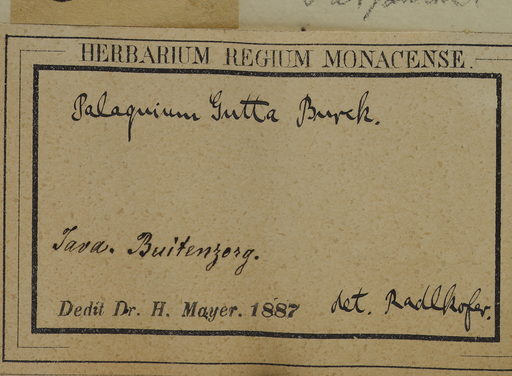 HERBARIUM REGIUM MONACENSE.
Palaquium Gutta Burck.
Java. Buitenzorg.
Dedit Dr. H. Mayer. 1887
det. Radlkofer.